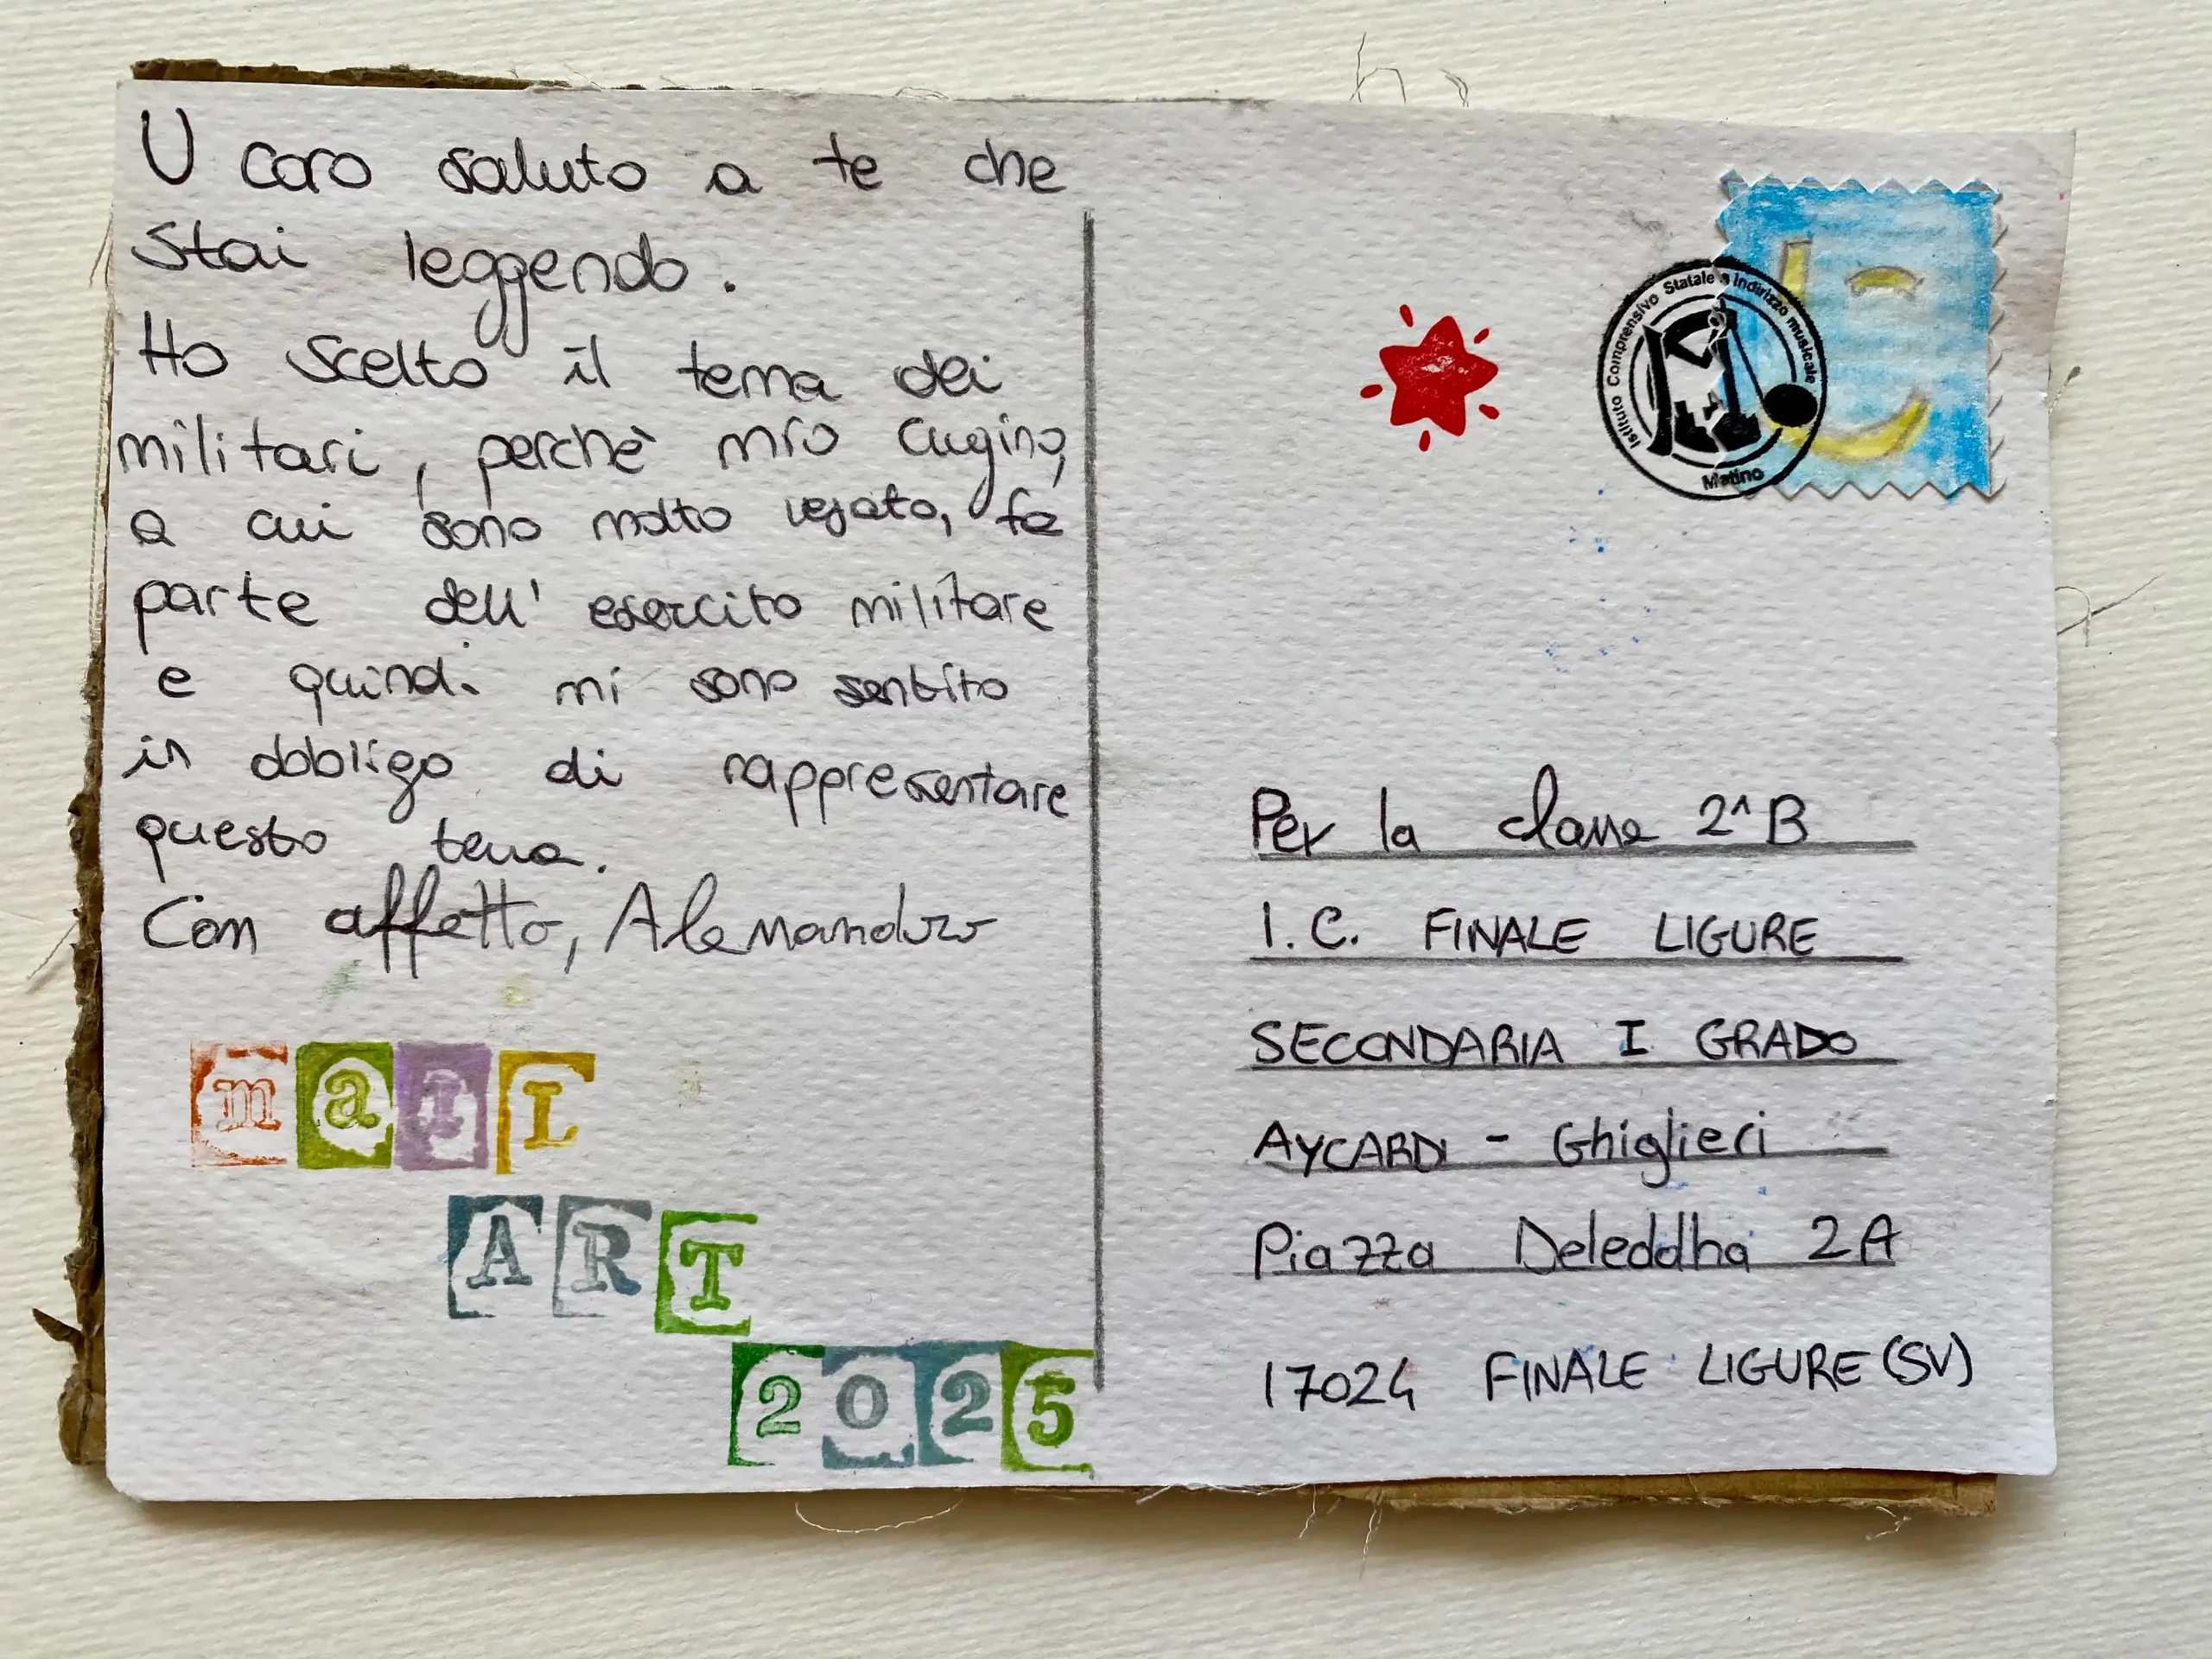 U caro saluto a te che
stai leggendo.
Ho scelto il tema dei
militari, perchè mio cugino,
a cui sono molto legato, fa
parte dell'esercito militare
e quindi mi sono sentito
in obbligo di rappresentare
questo tema.
Con affetto, Alessandro
maIL
ART
2025
Istituto Comprensivo Statale a Indirizzo musicale
Matino
Per la classe 2^B
I.C. FINALE LIGURE
SECONDARIA I GRADO
AYCARDI - Ghiglieri
Piazza Deleddha 2A
17024 FINALE LIGURE (SV)